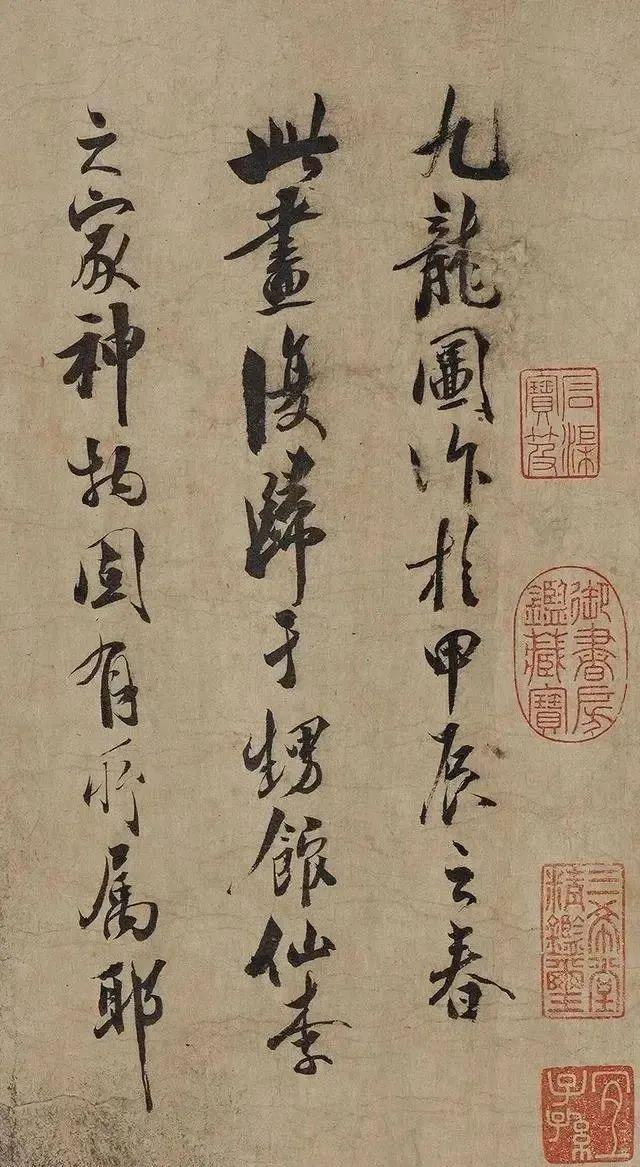 石渠寶笈
御書房鑑藏寶
三希堂精鑑璽
宜子孫
九龍圖作於甲辰之春
此畫復歸于甥館仙李
之家神物固有所屬耶